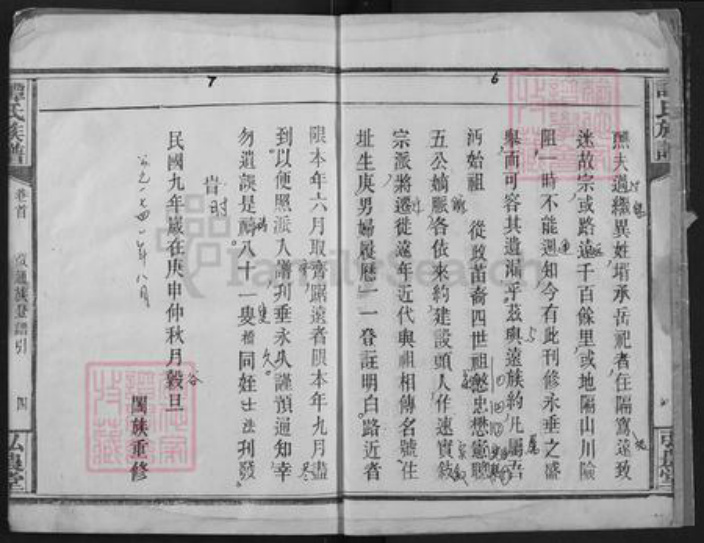 譚氏族譜
6
無夫過繼異姓壻承岳祀者在隔窵遠致
迷故宗或路遠千百餘里或地隔山川險
阻一時不能週知今有此刊修永垂之盛
舉而可容其遺漏乎茲與遠族約凡屬吾
沔始祖 從政苗裔四世祖慤忠懋憲聰
五公嫡脈各依來約建設頭人作速實敍
宗派將遷徙遠年近代與祖相傳名號住
址生庚男婦履歷一一登註明白路近者
7
限本年六月取齊賜遠者限本年九月盡
到以便照派入譜刊垂永久謹預通知幸
勿遺誤是禱八十一叟楷同姪士法刊發
時
民國九年歲在庚申仲秋月穀旦
闔族重修
公元一九四一年八月
譚氏族譜
卷首
譜引
四
弘農堂
FamilySearch